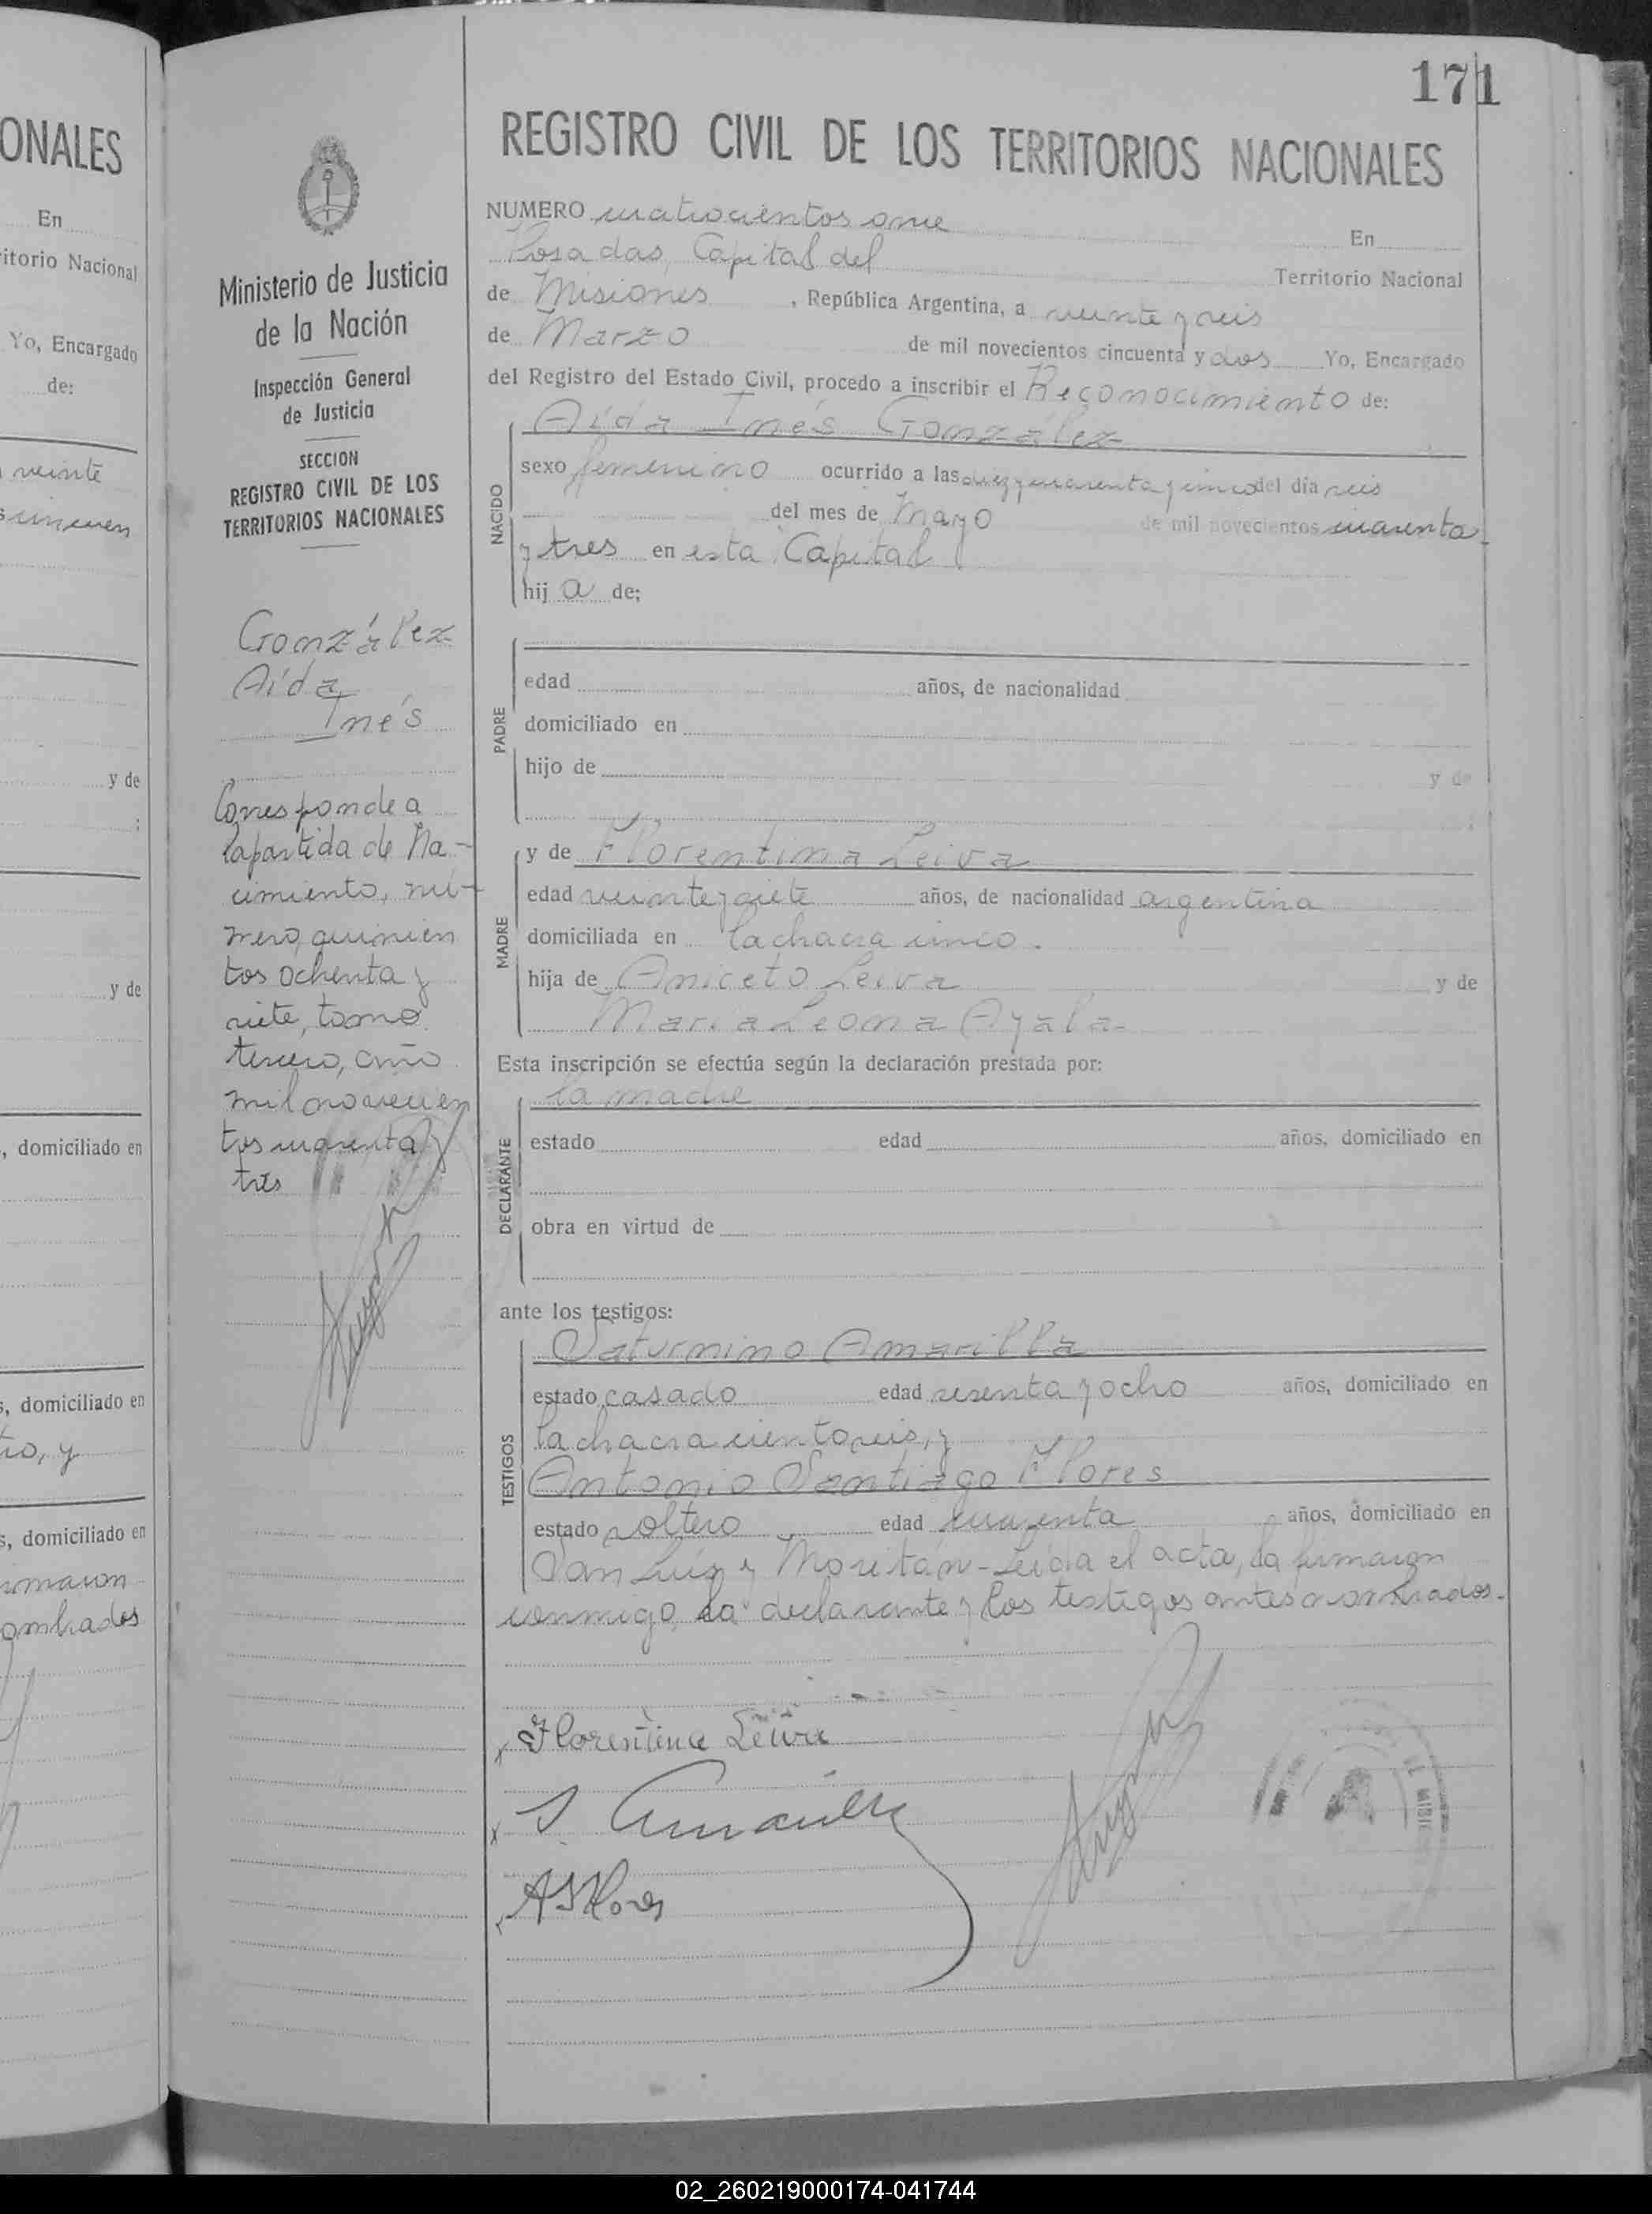 ONALES
En
itorio Nacional
Yo, Encargado
de:
veinte
y de
y de
, domiciliado en
s, domiciliado en
io, y
s, domiciliado en
171
Ministerio de Justicia
de la Nación
Inspección General
de Justicia
SECCION
REGISTRO CIVIL DE LOS
TERRITORIOS NACIONALES
González
Aída
Inés
Corresponde a
la partida de Na-
cimiento, nú-
mero, quinien
tos ochenta y
siete, tomo
tercero, año
mil novecien
tos cuarenta y
tres
REGISTRO CIVIL DE LOS TERRITORIOS NACIONALES
NUMERO cuatrocientos once En
Posadas, Capital del Territorio Nacional
de Misiones, República Argentina, a veinte y seis
de Marzo de mil novecientos cincuenta y dos Yo, Encargado
del Registro del Estado Civil, procedo a inscribir el Reconocimiento de:
Aída Inés González
NACIDO
sexo femenino ocurrido a las diez y cuarenta y cinco del día seis
del mes de Mayo de mil novecientos cuarenta
y tres en esta Capital
hij a de;
PADRE
edad años, de nacionalidad
domiciliado en
hijo de y de
MADRE
y de Florentina Leiva
edad veinte y siete años, de nacionalidad argentina
domiciliada en la chacra cinco.
hija de Aniceto Leiva y de
María Leona Ayala-
Esta inscripción se efectúa según la declaración prestada por:
la madre
DECLARANTE
estado edad años, domiciliado en
obra en virtud de
ante los testigos:
TESTIGOS
Saturnino Amarilla
estado casado edad sesenta y ocho años, domiciliado en
la chacra ciento seis, y
Antonio Santiago Flores
estado soltero edad cuarenta años, domiciliado en
San Luis y Moritán - Leída el acta, la firmaron
conmigo, la declarante y los testigos antes nombrados.
Florentina Leiva
S. Amarilla
A S Flores
02_260219000174-041744